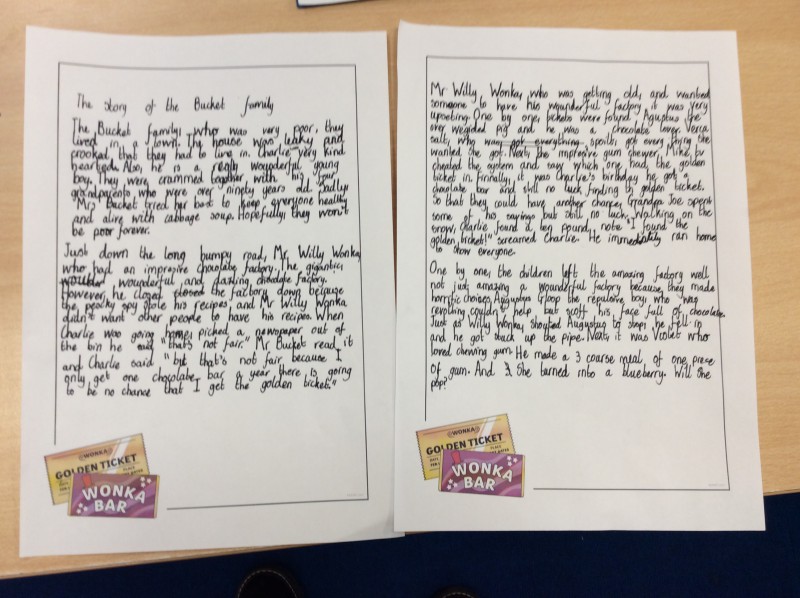 The story of the Bucket family
The Bucket family, who was very poor, they
lived in a town. Thy house was leaky and
crooked, that they had to live in. Charlie very kind
hearted. Also, he is a really wounderful young
boy. They were crammed together with his four
grandparents who were over ninety years old. Sadly,
Mrs Bucket tried her best to keep everyone healthy
and alive with cabbage soup. Hopefully, they won't
be poor forever.
Just down the long bumpy road, Mr Willy Wonka
who had an impresive chocolate factory. The gigantic,
wounderful and dazling chocolate factory.
However, he closed the factory down because
the peachy spy stole his recipes, and Mr Willy Wonka
didn't want other people to have his recipes. When
Charlie was going home, picked a newspaper out of
the bin he said "that's not fair." Mr Bucket read it
and Charlie said "but that's not fair because I
only get one chocolate bar a year there is going
to be no chance that I get the golden ticket."
WONKA
GOLDEN TICKET
WONKA
BAR
Mr Willy, Wonka, who was getting old, and wanted
someone to have his wounderful factory it was very
upseting. One by one, tickets were found. Agustus the
over weigided pig and he was a chocolate lover. Verca
salt, who was got everything spoilt, got every thing she
wanted she got. Next, the impresive gum chewer, Mike by
cheated the system and says which one had the golden
ticket in. Finnally, it was Charlie's birthday he got a
chocolate bar and still no luck finding to golden ticket.
So that they could have another chance, Grandpa Joe spent
some of his savings but still no luck. Walking on the
snow, Charlie found a ten pound note "I found the
golden ticket!" screamed Charlie. He immediatly ran home
to show everyone.
One by one, the children left the amazing factory well
not just amazing a wounderful factory because, they made
horrific choices. Augustus Gloop the repulsive boy, who was
revolting couldn't help but scoff his face full of chocolate.
Just as Willy Wonka, shouted Augustus to stop, he fell in
and he got stuck up the pipe. Next, it was Violet who
loved chewing gum. He made a 3 coarse meal of one piece
of gum. And She turned into a blueberry. Will she
pop?
WONKA
GOLDEN TICKET
WONKA
BAR